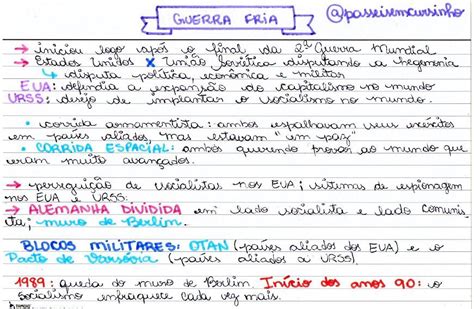 GUERRA FRIA
@passeisemcursinho
→ iniciou logo após o final da 2ª Guerra Mundial
→ Estados Unidos X União Soviética disputando a hegemonia
↳ disputa política, econômica e militar
EUA: defendia a expansão do capitalismo no mundo
URSS: desejo de implantar o socialismo no mundo.
• corrida armamentista: ambos espalhavam seus exércitos
em países aliados, mas estavam "em paz"
• CORRIDA ESPACIAL: ambos querendo provar ao mundo que
eram muito avançados.
→ perseguição de socialistas nos EUA; sistemas de espionagem
nos EUA e URSS.
→ ALEMANHA DIVIDIDA em lado socialista e lado comunis
ta; muro de Berlim.
BLOCOS MILITARES: OTAN (países aliados dos EUA) e o
Pacto de Varsóvia (países aliados a URSS).
1989: queda do muro de Berlim. Início dos anos 90: o
socialismo enfraquece cada vez mais.